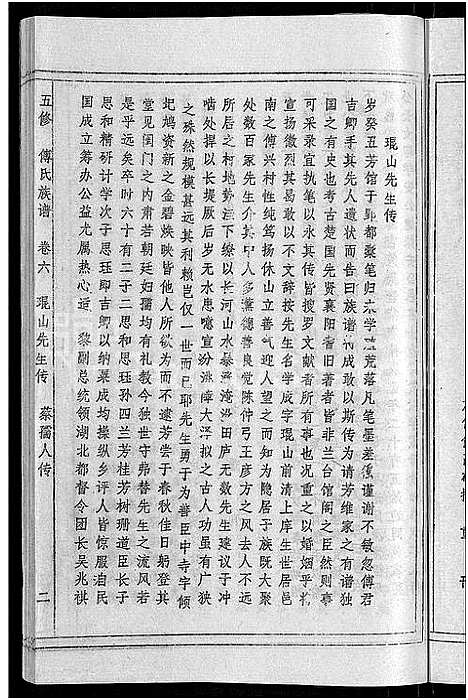 琨山先生传
岁癸五芳馆于鄂都橐笔归来学殖荒落凡笔墨差役谨谢不敏忽傅君
吉卿手其先人遗状而告曰族谱将成敢以斯传为请芳维家之有谱独
国之有史也考古楚国先贤襄阳耆旧著者皆非兰台馆阁之臣然则事
可采录宜执笔以永其传皆搜罗文献者所有事也况重之以婚姻乎揄
扬徽烈其曷敢以不文辞按先生名学成字琨山前清上庠生世居邑
南之傅兴村性纯笃扬休山立善气迎人望之而知为隐居子族既大聚
处数百家先生介其中人多薰德善良党陈仲弓王彦方之风去人不远
所居之村地势洼下缭以长河山水暴涨淹没田庐无数先生建议于冲
啮处捍以长堤厥后岁无水患噫宣纷泳障大泽拟之古人功虽有广狭
之殊然规模甚远其利赖岂仅一世而已耶先生勇于为善邑中寺宇倾
圯鸠资新之金碧焕映皆他人所欲为而不逮芳尝于春秋佳日躬登其
堂见闺门之内肃若朝廷妇孺均有礼教今其令似独世守弗替先生之流风若
是乎远矣卒时六十有二子二思和思珏孙四兰芳桂芳树珊道臣长子
思和精研计学次子思珏即吉卿以纳粟成均操纵乡评人皆惊服洎民
国成立筹办公益尤属热心适 黎副总统领湖北都督令团长吴兆祺
五修 傅氏族谱 卷六 琨山先生传 蔡孺人传 二